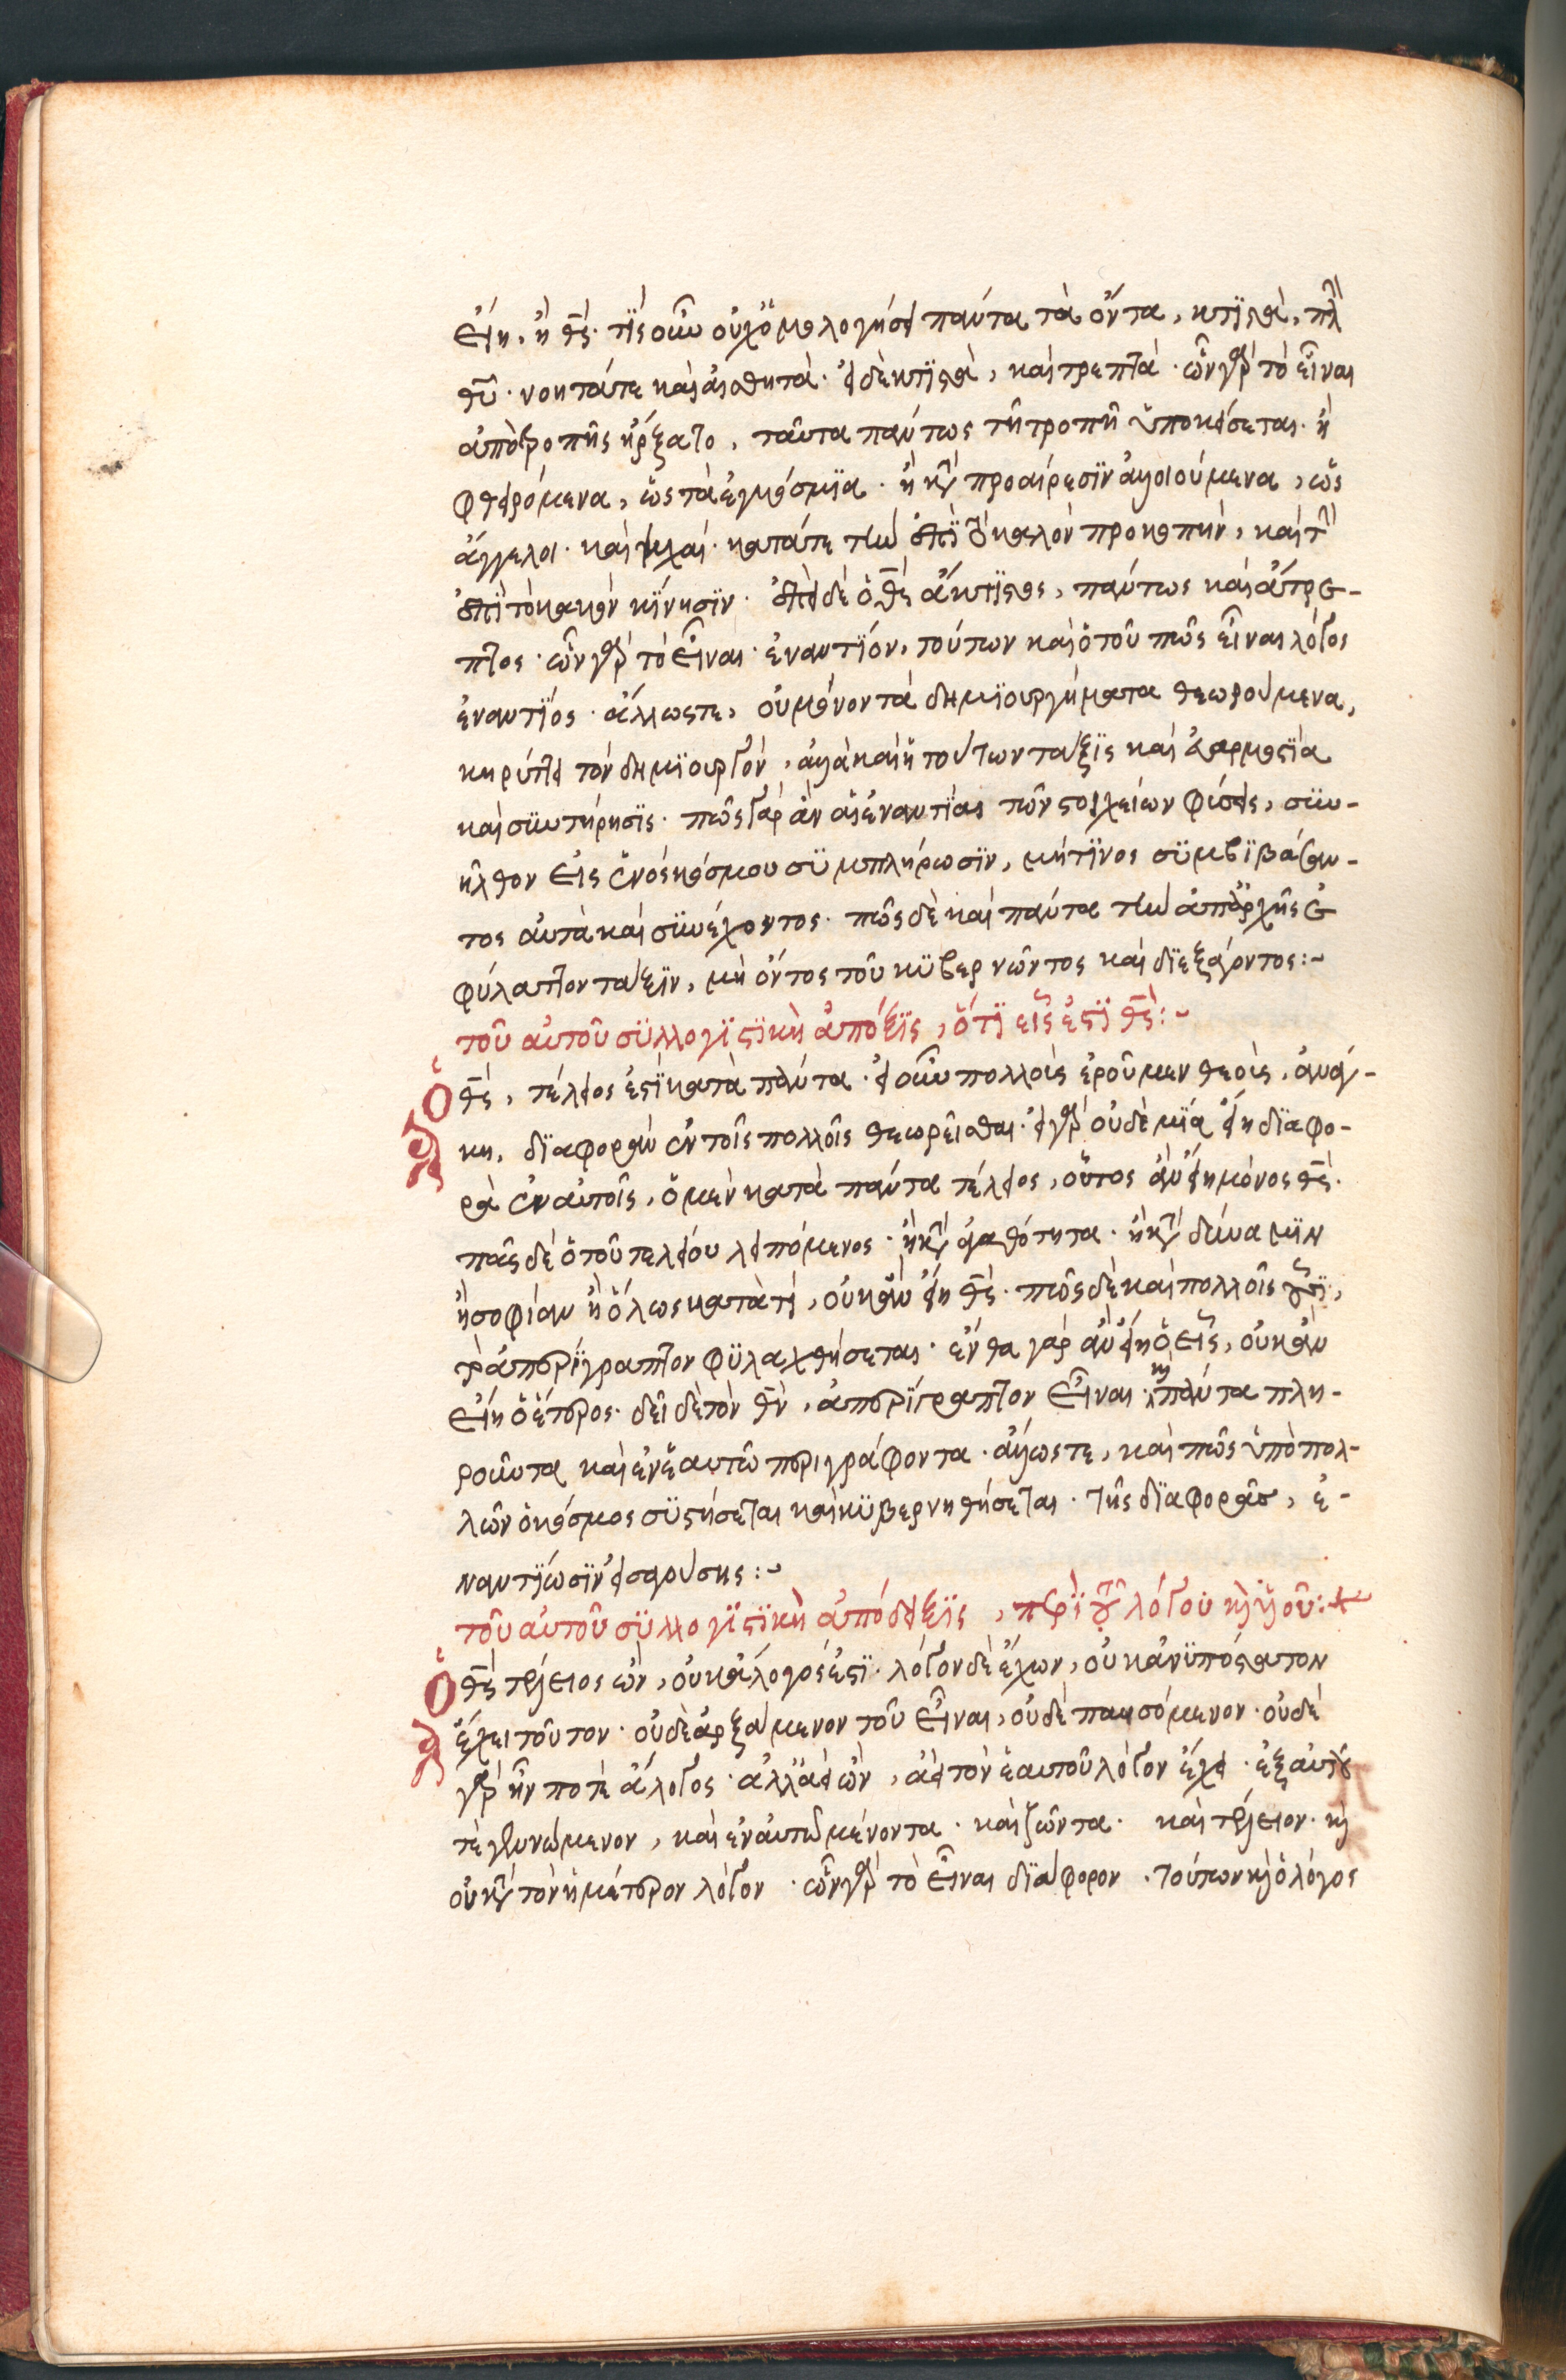 εἴη, ἢ θς̅. τίς οὖν οὐχ ὁμολογήσει πάντα τὰ ὄντα, κτϊστὰ, πλὴ
θυ̅. νοητά τε καὶ αἰσθητά. εἰ δὲ κτϊστὰ, καὶ τρεπτά. ὧν γὰρ τὸ εἶναι
ἀπὸ τροπῆς ἤρξατο, ταῦτα πάντως τῆ τροπῆ ὑποκείσεται. ἢ
φθειρόμενα, ὡς τὰ ἐγκόσμϊα. ἢ κατὰ προαίρεσϊν ἀλλοιούμενα, ὡς
ἄγγελοι. καὶ ψυχαί. κατά τε τὴν ἐπὶ τὸ καλὸν προκοπὴν, καὶ τὴν
ἐπὶ τὸ κακὸν κίνησϊν. ἐπεὶ δὲ ὁ θς̅ ἄκτϊστος, πάντως καὶ ἄτρε-
πτος. ὧν γὰρ τὸ εἶναι ἐναντϊον, τούτων καὶ ὁ τοῦ πῶς εἶναι λόγος
ἐναντϊος. ἄλλωστε, οὐ μόνον τὰ δημϊουργήματα θεωρούμενα,
κηρύττει τὸν δημϊουργὸν, ἀλλὰ καὶ ἡ τούτων τάξϊς καὶ ἁρμοστϊα
καὶ συντήρησϊς. πῶς γὰρ ἂν αἱ ἐναντϊαι τῶν στοιχείων φύσεις, συν-
ῆλθον εἰς ἑνὸς κόσμου συμπλήρωσϊν, μή τϊνος συμβϊβάζον-
τος αὐτὰ καὶ συνέχοντος. πῶς δὲ καὶ πάντα τὴν ἀπαρχῆς ἐ
φύλαττον τάξϊν, μὴ ὄντος τοῦ κυβερνῶντος καὶ διεξάγοντος:~
τοῦ αὐτοῦ συλλογϊστϊκὴ ἀπόδειξϊς, ὅτϊ εἷς ἐστϊ θς̅:~
Ὁ θς̅, τέλειος ἐστϊ κατὰ πάντα. εἰ οὖν πολλοὺς ἐροῦμεν θεοὺς, ἀνάγ-
κη, δϊαφορὰν ἐν τοῖς πολλοῖς θεωρεῖσθαι. εἰ γὰρ οὐδεμϊά εἴη δϊαφο-
ρὰ ἐν αὐτοῖς, ὁ μὲν κατὰ πάντα τέλειος, οὗτος ἂν εἴη μόνος θς̅.
πᾶς δὲ ὁ τοῦ τελείου λειπόμενος. ἢ κατὰ ἀγαθότητα. ἢ κατὰ δύναμϊν
ἢ σοφίαν ἢ ὅλως κατά τι, οὐκ ἂν εἴη θς̅. πῶς δὲ καὶ πολλοῖς οὖσϊ,
τὸ ἀπερϊγραπτον φυλαχθήσεται. ἔνθα γὰρ ἂν εἴη ὁ εἷς, οὐκ ἂν
εἴη ὁ ἕτερος. δεῖ δὲ τὸν θν̅, ἀπερϊγραπτον εἶναι. καὶ πάντα πλη-
ροῦντα καὶ ἐν ἑαυτῶ περιγράφοντα. ἄλλωστε, καὶ πῶς ὑπὸ πολ-
λῶν ὁ κόσμος συστήσεται καὶ κυβερνηθήσεται. τῆς δϊαφορᾶς, ἐ-
ναντϊωσϊν εἰσαγούσης:~
τοῦ αὐτοῦ συλλογϊστϊκὴ ἀπόδειξϊς, περὶ τοῦ λόγου καὶ υἱοῦ:~
Ὁ θς̅ τέλειος ὢν, οὐκ ἄλογός ἐστϊ. λόγον δὲ ἔχων, οὐκ ἀνϋπόστατον
ἔχει τοῦτον. οὐδὲ ἀρξάμενον τοῦ εἶναι, οὐδὲ παυσόμενον. οὐδὲ
γὰρ ἦν ποτὲ ἄλογος. ἀλλὰ ἀεὶ ὢν, ἀεὶ τὸν ἑαυτοῦ λόγον ἔχει. ἐξ αὐτοῦ
τε γεννώμενον, καὶ ἐν αὐτῶ μένοντα. καὶ ζῶντα. καὶ τέλειον. καὶ
οὐ κατὰ τὸν ἡμέτερον λόγον. ὧν γὰρ τὸ εἶναι δϊάφορον. τούτων καὶ ὁ λόγος